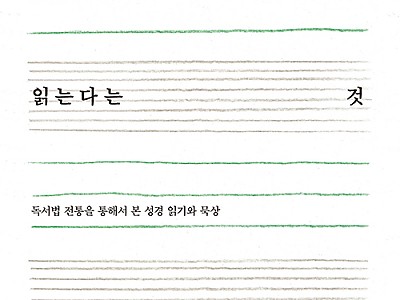 읽는다는 것
독서법 전통을 통해서 본 성경 읽기와 묵상